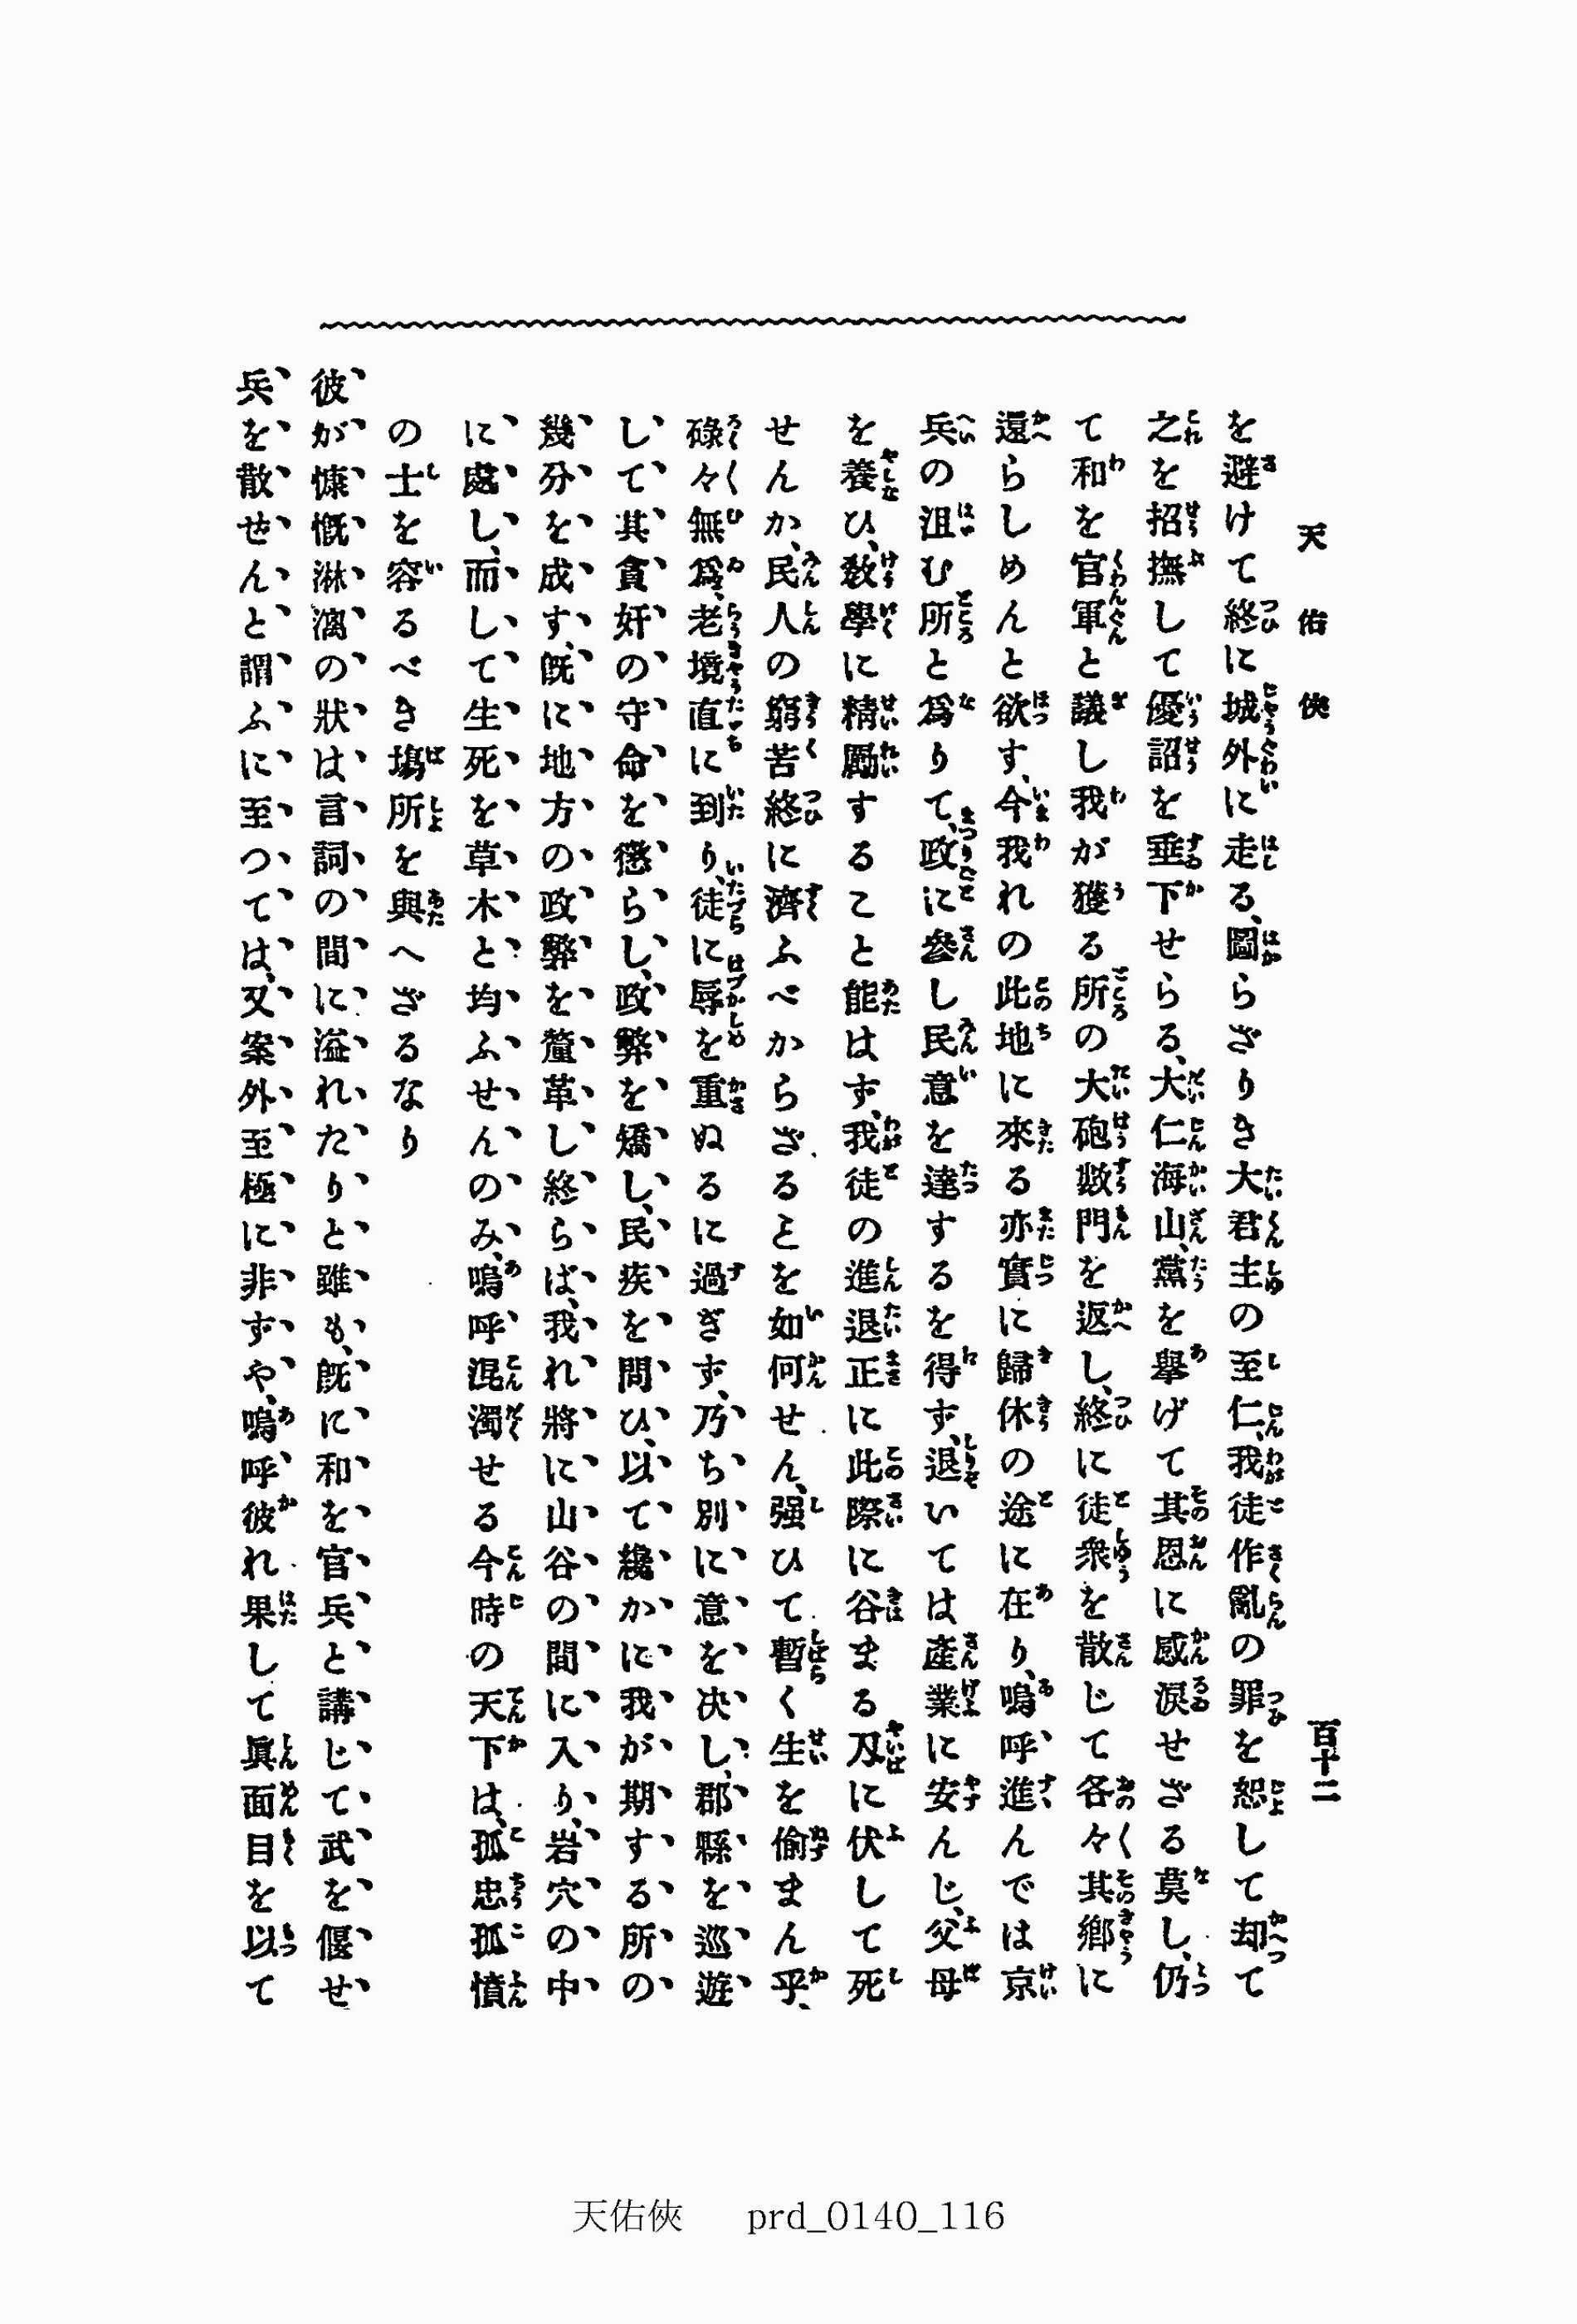 天佑俠
百十二
を避けて終に城外に走る、圖らざりき大君主の至仁、我徒作亂の罪を恕して却て
之を招撫して優詔を垂下せらる、大仁海山、黨を擧げて其恩に感涙せざる莫し、仍
て和を官軍と議し我が獲る所の大砲數門を返し、終に徒衆を散じて各々其鄕に
還らしめんと欲す、今我れの此地に來る亦實に歸休の途に在り、嗚呼進んでは京
兵の沮む所と爲りて、政に參し民意を達するを得ず、退いては産業に安んじ、父母
を養ひ、敎學に精勵すること能はず、我徒の進退正に此際に谷まる刄に伏して死
せんか、民人の窮苦終に濟ふべからざるを如何せん、强ひて暫く生を偷まん乎、
碌々無爲、老境直に到り、徒に辱を重ぬるに過ぎず、乃ち別に意を决し、郡縣を巡遊
して其貪奸の守命を懲らし、政弊を矯し、民疾を問ひ、以て纔かに我が期する所の
幾分を成す、旣に地方の政弊を釐革し終らば、我れ將に山谷の間に入り、岩穴の中
に處し、而して生死を草木と均ふせんのみ、嗚呼混濁せる今時の天下は、孤忠孤憤
の士を容るべき塲所を與へざるなり
彼が慷慨淋漓の狀は言詞の間に溢れたりと雖も、旣に和を官兵と講じて武を偃せ
兵を散せんと謂ふに至つては、又案外至極に非ずや、嗚呼彼れ果して眞面目を以て
天佑俠 prd_0140_116